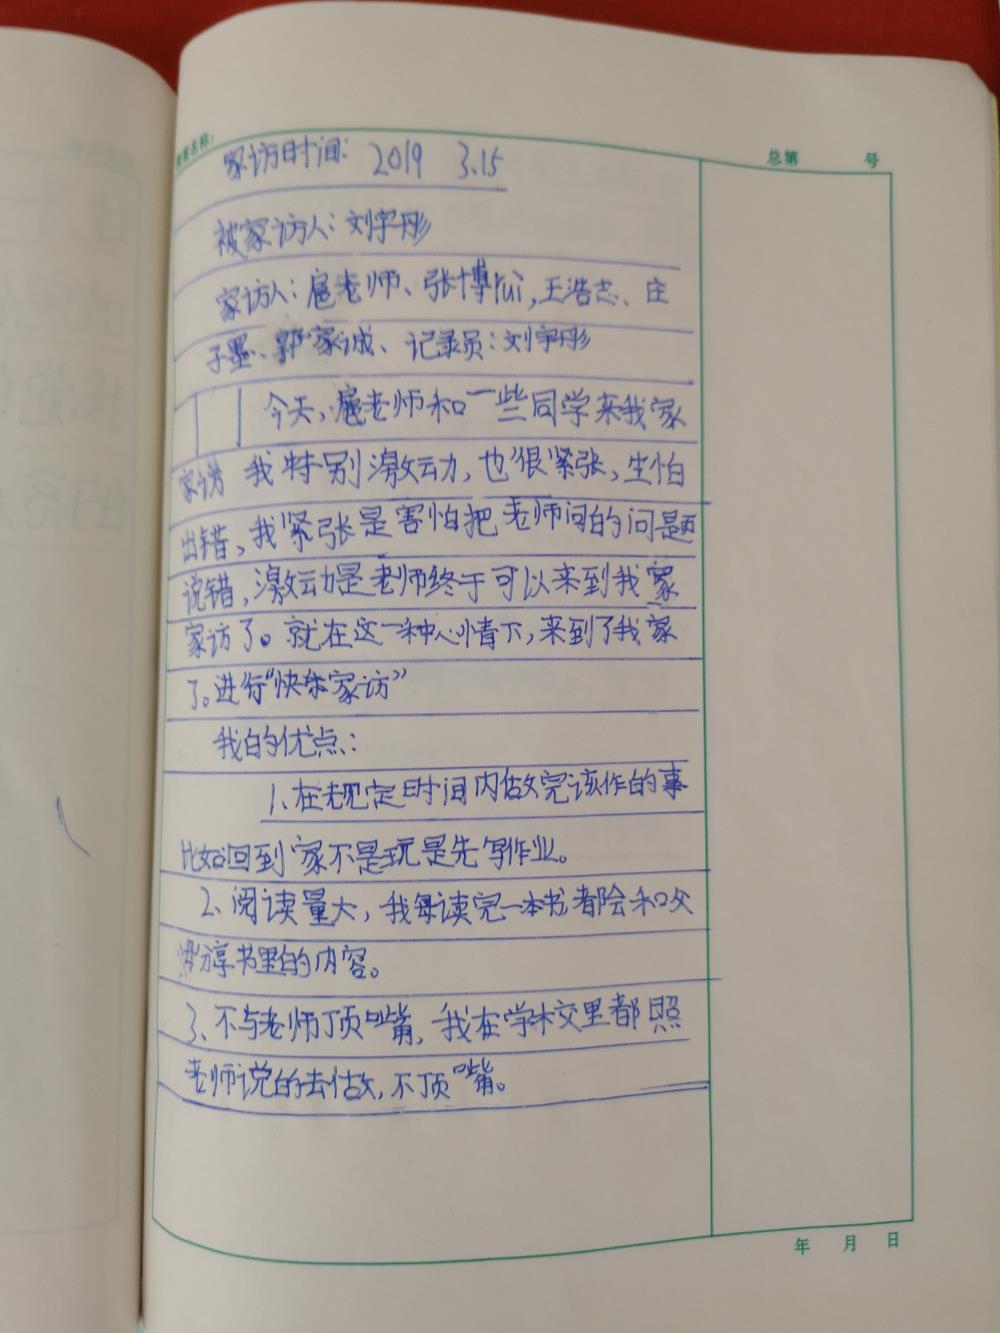 总第 号
家访时间: 2019 3.15
被家访人:刘宇彤
家访人:扈老师、张博rui,王浩志、庄
子墨、郭家诚、记录员:刘宇彤
今天,扈老师和一些同学来我家
家访 我特别激动,也很紧张,生怕
出错,我紧张是害怕把老师问的问题
说错,激动是老师终于可以来到我家
家访了。就在这一种心情下,来到了我家
了。进行“快乐家访”
我的优点:
1、在规定时间内做完该作的事
比如回到家不是玩是先写作业。
2、阅读量大,我每读完一本书都会和父
分享书里的内容。
3、不与老师顶嘴,我在学校里都照
老师说的去做,不顶嘴。
年 月 日